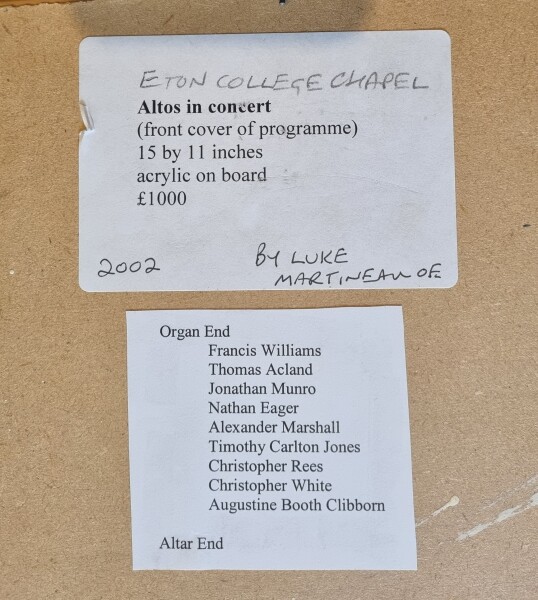 ETON COLLEGE CHAPEL
Altos in concert
(front cover of programme)
15 by 11 inches
acrylic on board
£1000
2002
BY LUKE
MARTINEAU OE
Organ End
Francis Williams
Thomas Acland
Jonathan Munro
Nathan Eager
Alexander Marshall
Timothy Carlton Jones
Christopher Rees
Christopher White
Augustine Booth Clibborn
Altar End